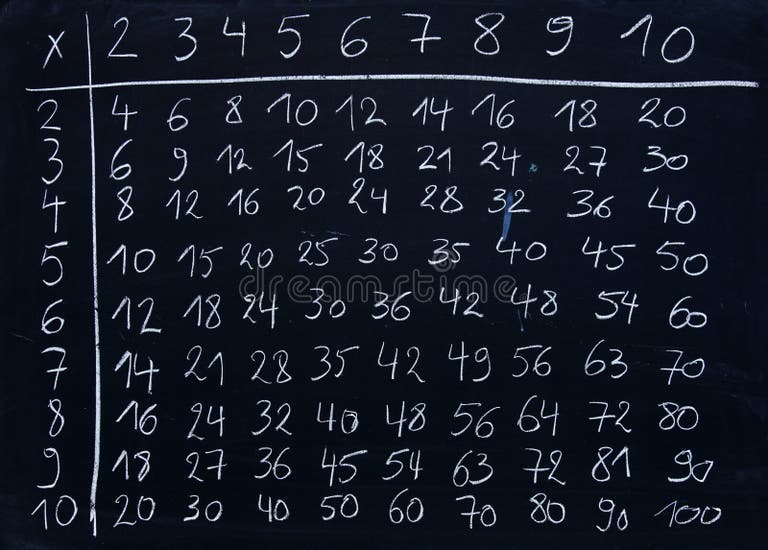 x 2 3 4 5 6 7 8 9 10
2 4 6 8 10 12 14 16 18 20
3 6 9 12 15 18 21 24 27 30
4 8 12 16 20 24 28 32 36 40
5 10 15 20 25 30 35 40 45 50
dreamstime
6 12 18 24 30 36 42 48 54 60
7 14 21 28 35 42 49 56 63 70
8 16 24 32 40 48 56 64 72 80
9 18 27 36 45 54 63 72 81 90
10 20 30 40 50 60 70 80 90 100